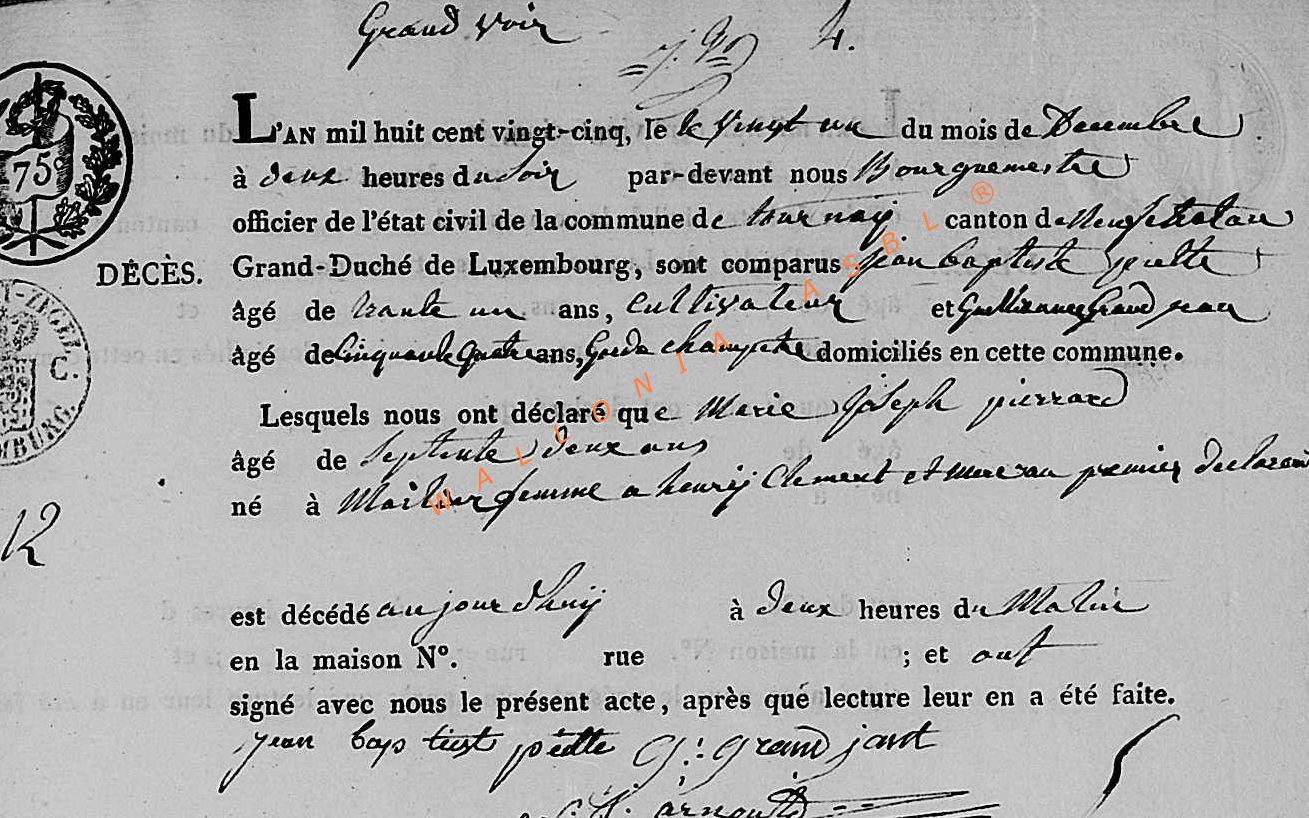 Grand Voir
4.
75
L'AN mil huit cent vingt-cinq, le le Vingt un du mois de Decembre
à deux heures du Soir par-devant nous Bourguemestre
officier de l'état civil de la commune de tournay canton de Neufchatau
DÉCÈS. Grand-Duché de Luxembourg, sont comparus Jean baptiste
âgé de trante un ans, Cultivateur et Guillaume Grand jean
âgé de Cinquante Quatre ans, Garde champetre domiciliés en cette commune.
Lesquels nous ont déclaré que Marie Joseph pierrard
âgé de Septente deux ans
né à femme a henry Clement et mere au premier declarant
12
est décédé aujourdhuy à Deux heures du Matin
en la maison N°. rue ; et ont
signé avec nous le présent acte, après que lecture leur en a été faite.
jean baptist G: grand
C.
MBURG.
WALLONIA ASBL ®